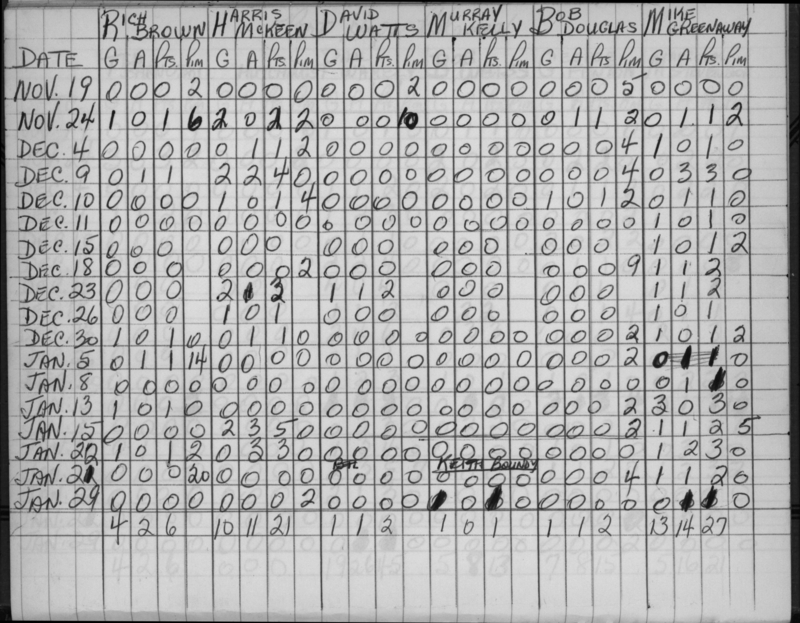 RICH BROWN HARRIS MCKEEN DAVID WATTS MURRAY KELLY BOB DOUGLAS MIKE GREENAWAY
DATE G A Pts. Pim G A Pts. Pim G A Pts. Pim G A Pts. Pim G A Pts. Pim G A Pts. Pim
NOV. 19 0 0 0 2 0 0 0 0 0 0 0 2 0 0 0 0 0 0 0 5 0 0 0 0
NOV. 24 1 0 1 6 2 0 2 2 0 0 0 10 0 0 0 0 0 1 1 2 0 1 1 2
DEC. 4 0 0 0 0 0 1 1 2 0 0 0 0 0 0 0 0 0 0 0 4 1 0 1 0
DEC. 9 0 1 1 2 2 4 0 0 0 0 0 0 0 0 0 0 0 0 4 0 3 3 0
DEC. 10 0 0 0 0 1 0 1 4 0 0 0 0 0 0 0 0 1 0 1 2 0 1 1 0
DEC. 11 0 0 0 0 0 0 0 0 0 0 0 0 0 0 0 0 0 0 0 0 1 0 1 0
DEC. 15 0 0 0 0 0 0 0 0 0 0 0 0 0 0 0 1 0 1 2
DEC. 18 0 0 0 0 0 0 2 0 0 0 0 0 0 0 0 0 9 1 1 2
DEC. 23 0 0 0 2 1 3 1 1 2 0 0 0 0 0 0 1 1 2
DEC. 26 0 0 0 1 0 1 0 0 0 0 0 0 0 0 0 1 0 1
DEC. 30 1 0 1 0 0 1 1 0 0 0 0 0 0 0 0 0 0 0 0 2 1 0 1 2
JAN. 5 0 1 1 14 0 0 0 0 0 0 0 0 0 0 0 0 0 0 0 2 0 1 1 0
JAN. 8 0 0 0 0 0 0 0 0 0 0 0 0 0 0 0 0 0 0 0 0 0 1 1 0
JAN. 13 1 0 1 0 0 0 0 0 0 0 0 0 0 0 0 0 0 0 0 2 3 0 3 0
JAN. 15 0 0 0 0 2 3 5 0 0 0 0 0 0 0 0 0 0 0 0 2 1 1 2 5
JAN. 22 1 0 1 2 0 3 3 0 0 0 0 0 0 0 0 0 0 0 0 0 1 2 3 0
KEITH BOUNDY
JAN. 21 0 0 0 20 0 0 0 0 0 0 0 0 0 0 0 0 0 0 0 4 1 1 2 0
JAN. 29 0 0 0 0 0 0 0 2 0 0 0 0 1 0 1 0 0 0 0 0 0 1 1 0
4 2 6 10 11 21 1 1 2 1 0 1 1 1 2 13 14 27